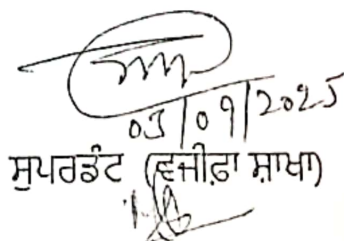 03/09/2025
ਸੁਪਰਡੰਟ (ਵਜੀਫ਼ਾ ਸ਼ਾਖਾ)